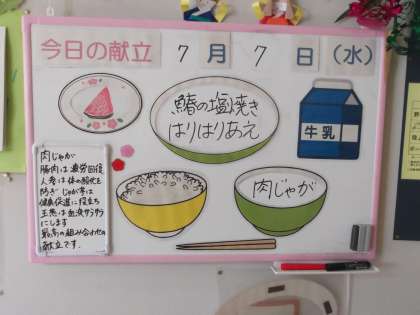 今日の献立 7月7日(水)
鰆の塩焼き
はりはりあえ
牛乳
肉じゃが
肉じゃが
豚肉は疲労回復
人参は体の酸化を
防ぎ じゃが芋は
健康促進に役立ち
玉葱は血液サラサラ
にします
最高の組み合わせの
献立です。